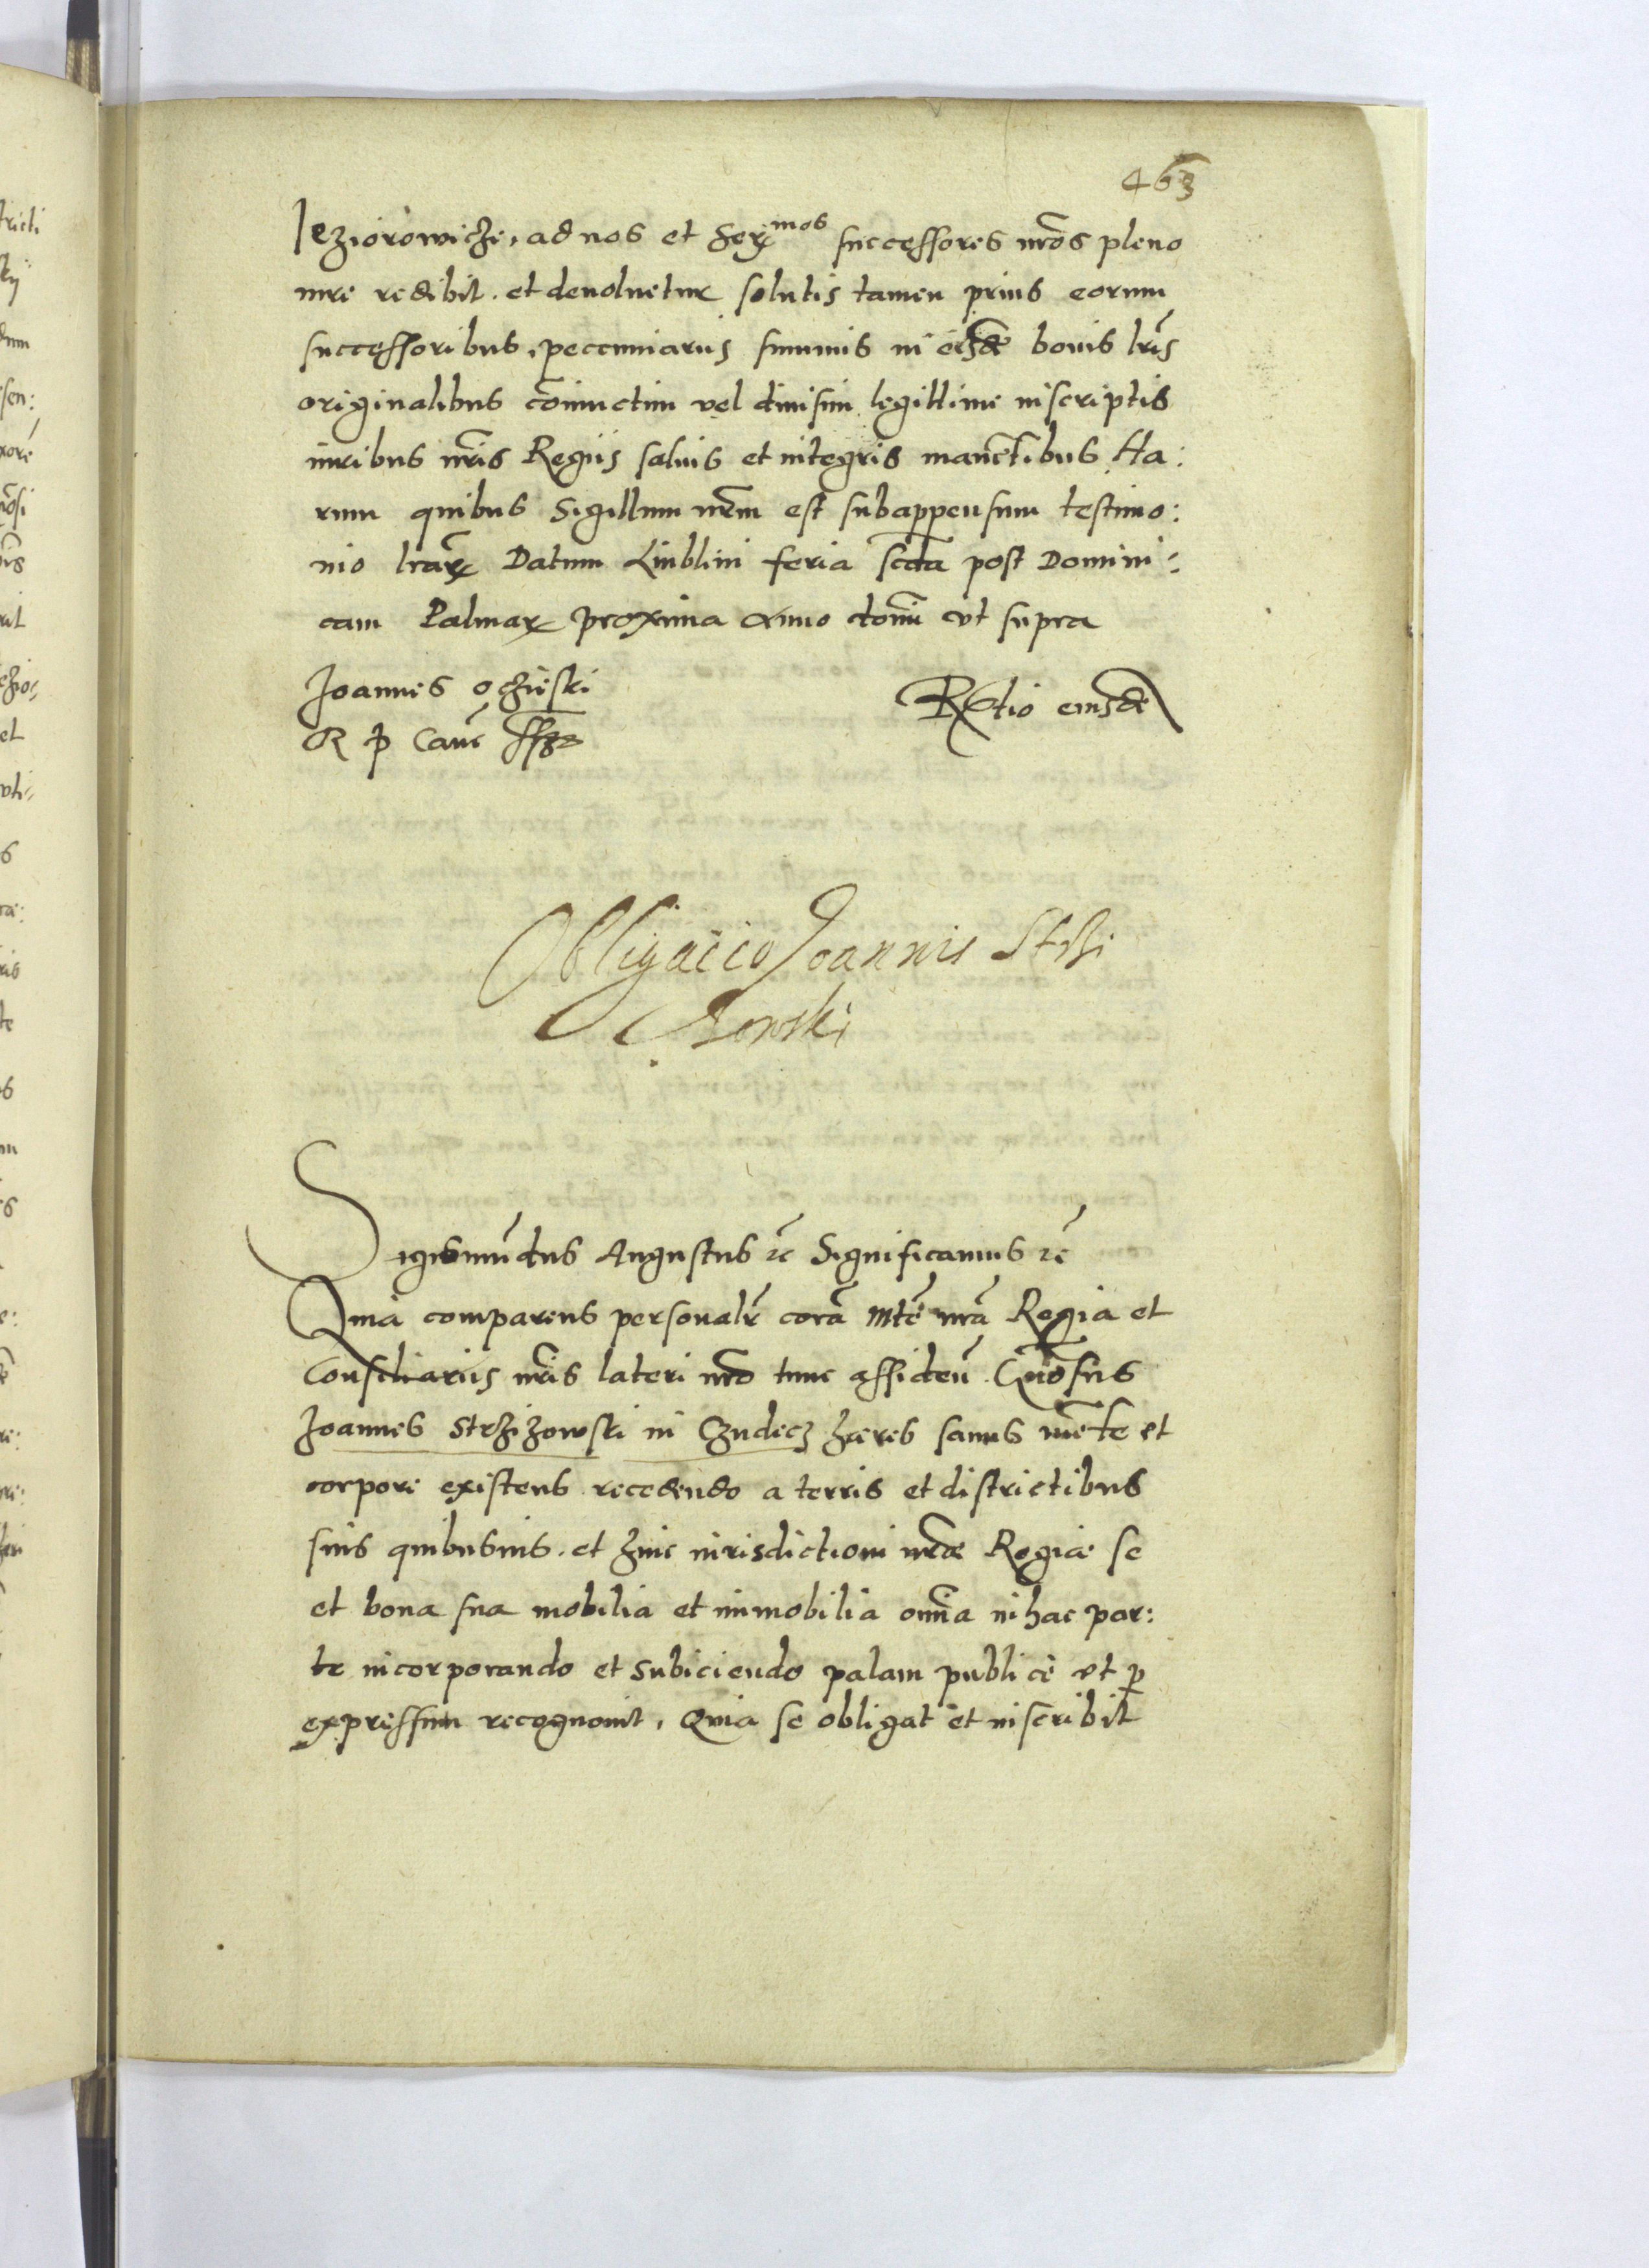 463
Jeziorowicze, ad nos et Serx^mos successores nr̃os pleno
iure redibit. et devoluetur solutis tamen prius eorum
successoribus, pecuniariis summis in eisdẽ bonis lr̃is
originalibus cõniunctim vel diuisim legittime inscriptis
iuribus nr̃is Regiis saluis et integris manẽtibus Ha:
rum quibus Sigillum nr̃m est subappensum testimo:
nio lr̃arx Datum Liublini feria scda post Domini:
cam Palmarx proxima Anno domĩ vt supra
Joannes oczieski
R P Canc ssp
Rlatio eiusdẽ
Obligacio Joannis Strzi
zowski
Sigismũdus Augustus ⁊c Significamus ⁊c
Quia comparens personalr̃ corã Mtẽ nrã Regia et
Consiliariis nr̃is lateri nr̃o tunc assideñ. Gñosus
Joannes Strzizowski in Czudecz hæres sanus mẽte et
corpore existens recedendo a terris et districtibus
suis quibusuis. et huic iurisdictioni nr̃æ Regiæ se
et bona sua mobilia et immobilia om̃ia in hac par:
te incorporando et subiciendo palam publicè vt p
expressum recognouit, Quia se obligat et inscribit